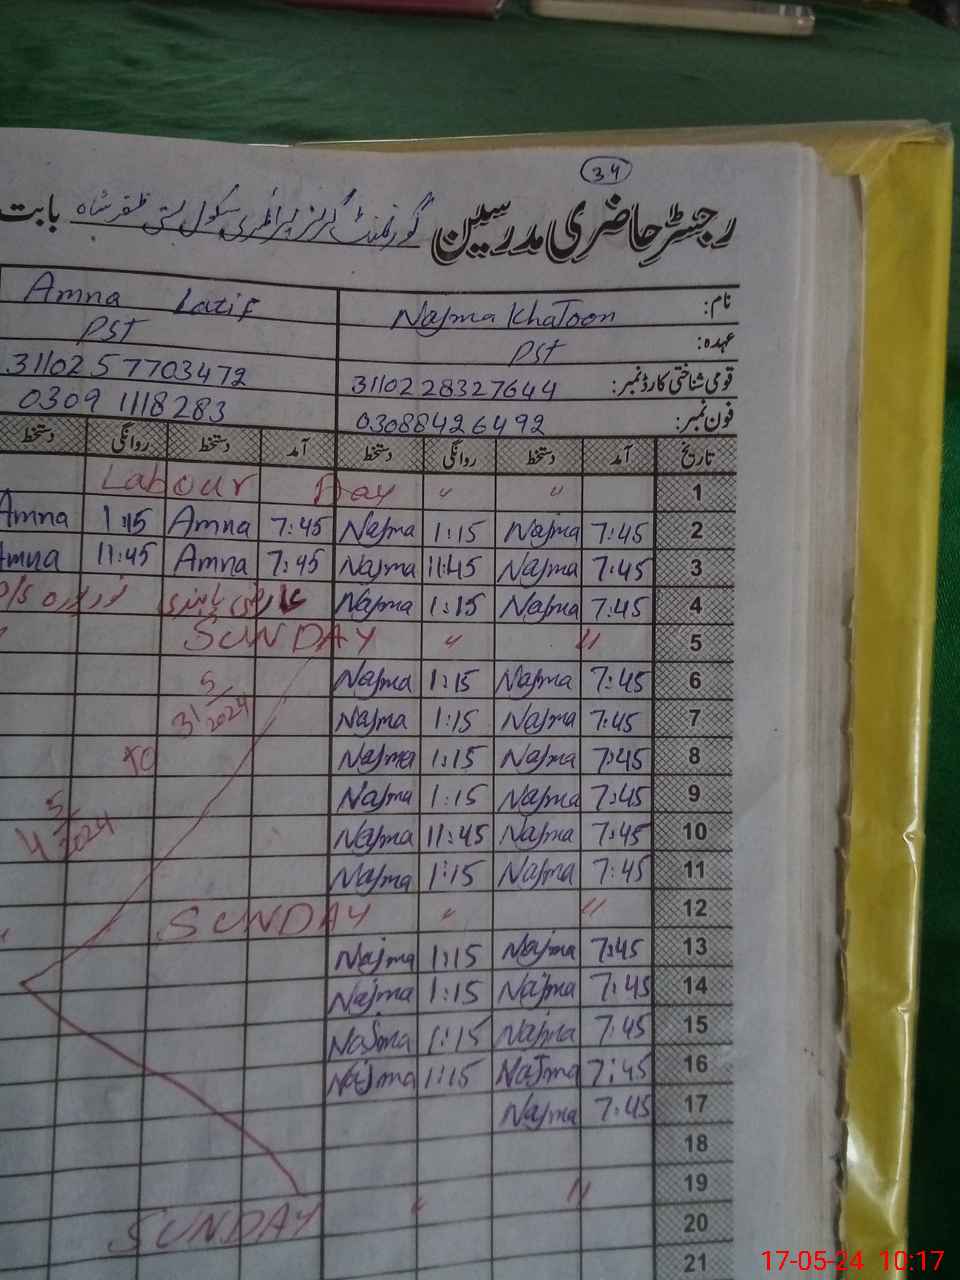 34
رجسٹر حاضری مدرسین گورنمنٹ گرلز پرائمری سکول بستی ظفر شاہ بابت
نام: Najma Khatoon Amna Latif
عہدہ: PST PST
قومی شناختی کارڈ نمبر: 3110228327644 3110257703472
فون نمبر: 03088426492 03091118283
تاریخ آمد دستخط روانگی دستخط آمد دستخط روانگی دستخط
1 Labour Day " "
2 7:45 Najma 1:15 Najma 7:45 Amna 1:15 Amna
3 7:45 Najma 11:45 Najma 7:45 Amna 11:45 Amna
4 7:45 Najma 1:15 Najma عارضی پابندی
5 SUNDAY " "
6 7:45 Najma 1:15 Najma 5
7 7:45 Najma 1:15 Najma 31/2024
8 7:45 Najma 1:15 Najma to
9 7:45 Najma 1:15 Najma 5
10 7:45 Najma 11:45 Najma 4/2024
11 7:45 Najma 1:15 Najma
12 SUNDAY " "
13 7:45 Najma 1:15 Najma
14 7:45 Najma 1:15 Najma
15 7:45 Najma 1:15 Najma
16 7:45 Najma 1:15 Najma
17 7:45 Najma
18
19 SUNDAY " "
20
21
17-05-24 10:17